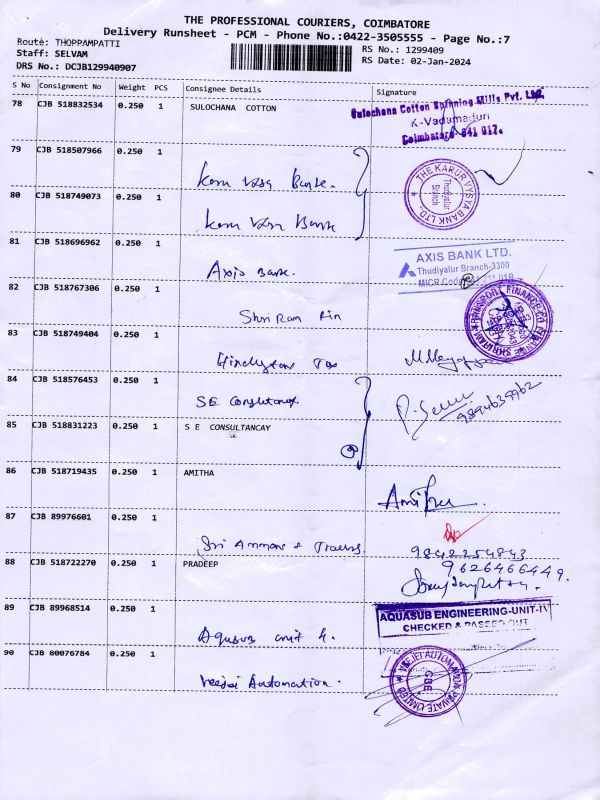 THE PROFESSIONAL COURIERS, COIMBATORE
Delivery Runsheet - PCM - Phone No.:0422-3505555 - Page No.:7
Route: THOPPAMPATTI
Staff: SELVAM
DRS No.: DCJB129940907
RS No.: 1299409
RS Date: 02-Jan-2024
S No Consignment No Weight PCS Consignee Details Signature
78 CJB 518832534 0.250 1 SULOCHANA COTTON
Sulochana Cotton Spinning Mills Pvt. Ltd.
K-Vadamaduri
Coimbatore 641 017.
79 CJB 518507966 0.250 1
Karu Vysa Bank.
THE KARUR VYSYA BANK LTD.
Thudiyalur
Branch
80 CJB 518749073 0.250 1
Karu Vysa Bank
81 CJB 518696962 0.250 1
Axis Bank.
AXIS BANK LTD.
Thudiyalur Branch-3300
MICR Code
82 CJB 518767306 0.250 1
Shri Ram Fin
TRANSPORT FINANCE CO
83 CJB 518749404 0.250 1
Hindustan
84 CJB 518576453 0.250 1
SE Consultancy
9894639962
85 CJB 518831223 0.250 1 S E CONSULTANCAY
86 CJB 518719435 0.250 1 AMITHA
87 CJB 89976601 0.250 1
Sri Amman Traders
9842254843
88 CJB 518722270 0.250 1 PRADEEP
9626466449.
89 CJB 89968514 0.250 1
Aqusub unit 4.
AQUASUB ENGINEERING-UNIT-IV
CHECKED & PASSED OUT
90 CJB 80076784 0.250 1
Veejai Automation.
VEEJEI AUTOMATION PRIVATE LIMITED
CBE